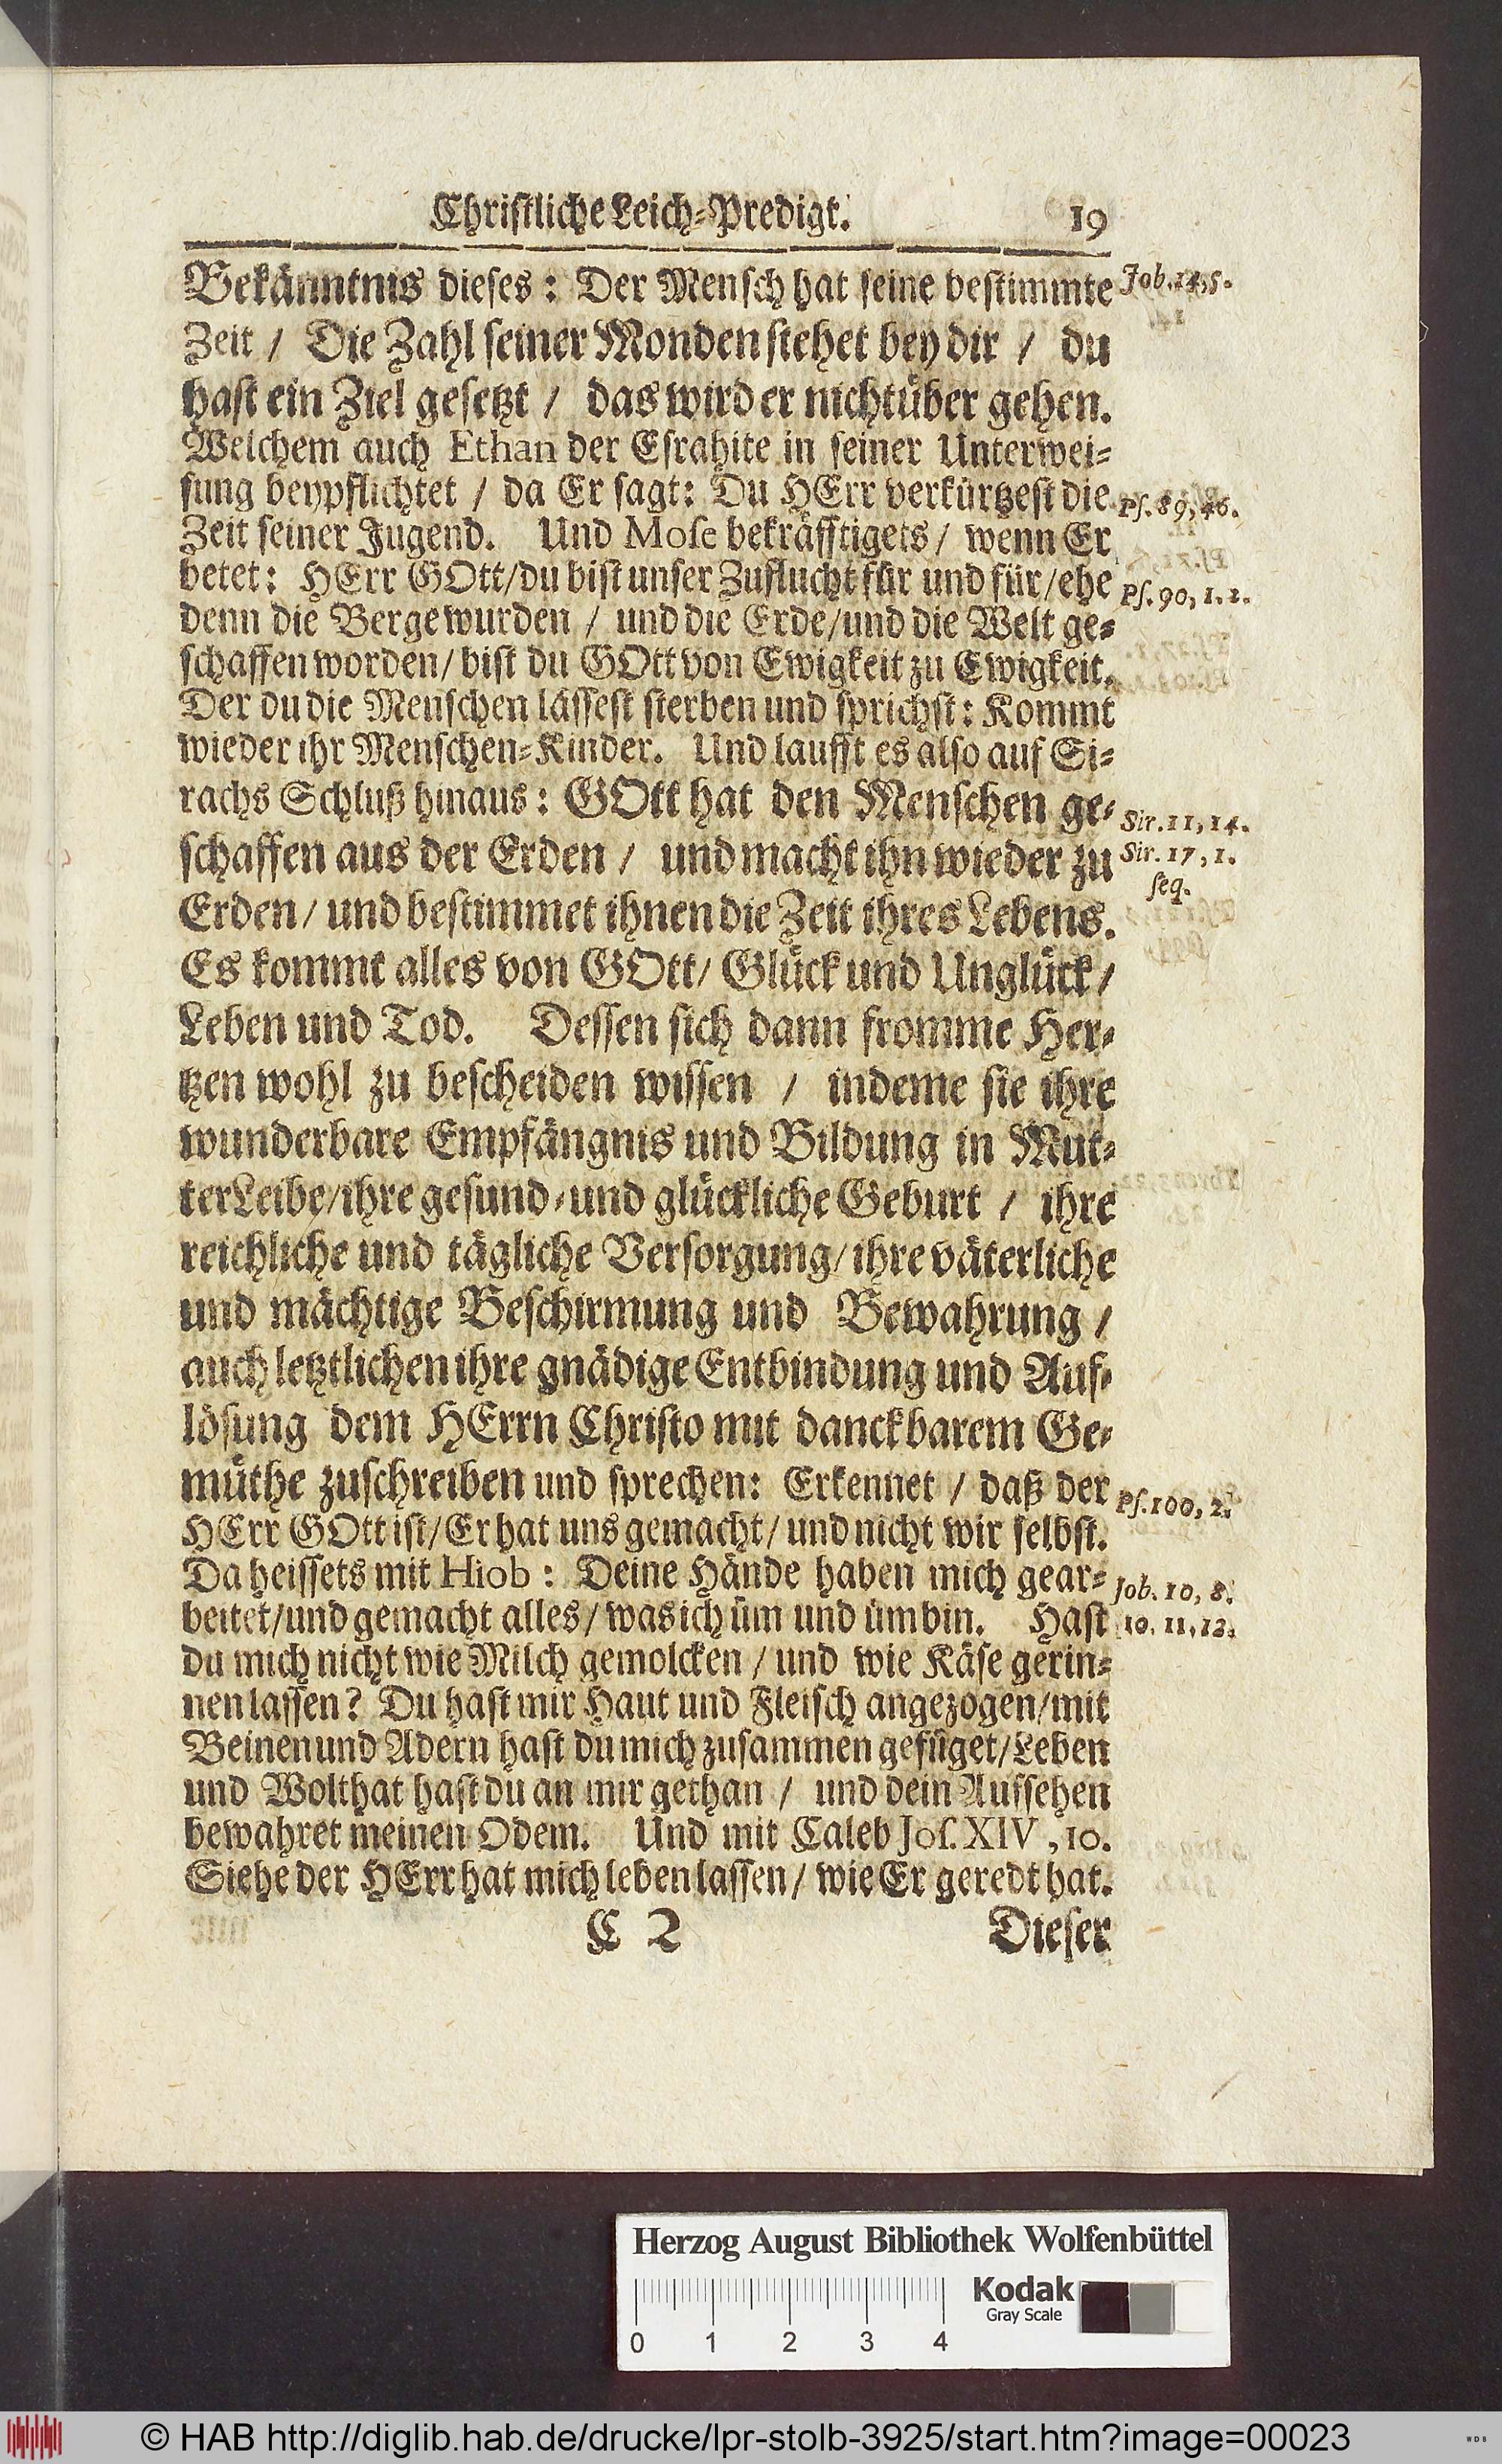 Christliche Leich-Predigt. 19
Bekänntnis dieses: Der Mensch hat seine bestimmte
Job. 14, 5.
Zeit / Die Zahl seiner Monden stehet bey dir / du
hast ein Ziel gesetzt / das wird er nicht über gehen.
Welchem auch Ethan der Esrahite in seiner Unterwei-
sung beypflichtet / da Er sagt: Du HErr verkürtzest die
Ps. 89, 46.
Zeit seiner Jugend. Und Mose bekräfftigets / wenn Er
betet: HErr GOtt/du bist unser Zuflucht für und für/ehe
Ps. 90, 1. 2.
denn die Berge wurden / und die Erde/und die Welt ge-
schaffen worden/ bist du GOtt von Ewigkeit zu Ewigkeit.
Der du die Menschen lässest sterben und sprichst: Kommt
wieder ihr Menschen-Kinder. Und laufft es also auf Si-
rachs Schluß hinaus: GOtt hat den Menschen ge-
Sir. 11, 14.
schaffen aus der Erden / und macht ihn wieder zu
Sir. 17, 1.
seq.
Erden/ und bestimmet ihnen die Zeit ihres Lebens.
Es kommt alles von GOtt/ Glück und Unglück/
Leben und Tod. Dessen sich dann fromme Her-
tzen wohl zu bescheiden wissen / indeme sie ihre
wunderbare Empfängnis und Bildung in Mut-
ter Leibe/ihre gesund-und glückliche Geburt / ihre
reichliche und tägliche Versorgung/ ihre väterliche
und mächtige Beschirmung und Bewahrung /
auch letztlichen ihre gnädige Entbindung und Auf-
lösung dem HErrn Christo mit danckbarem Ge-
müthe zuschreiben und sprechen: Erkennet / daß der
Ps. 100, 2.
HErr GOtt ist/Er hat uns gemacht/ und nicht wir selbst.
Da heissets mit Hiob: Deine Hände haben mich gear-
Job. 10, 8.
beitet/und gemacht alles/ was ich üm und üm bin. Hast
10. 11, 12.
du mich nicht wie Milch gemolcken / und wie Käse gerin-
nen lassen? Du hast mir Haut und Fleisch angezogen/mit
Beinen und Adern hast du mich zusammen gefüget/Leben
und Wolthat hast du an mir gethan / und dein Aufsehen
bewahret meinen Odem. Und mit Caleb Jos. XIV, 10.
Siehe der HErr hat mich leben lassen/ wie Er geredt hat.
C 2 Dieser
Herzog August Bibliothek Wolfenbüttel
Kodak
Gray Scale
0 1 2 3 4
© HAB http://diglib.hab.de/drucke/lpr-stolb-3925/start.htm?image=00023